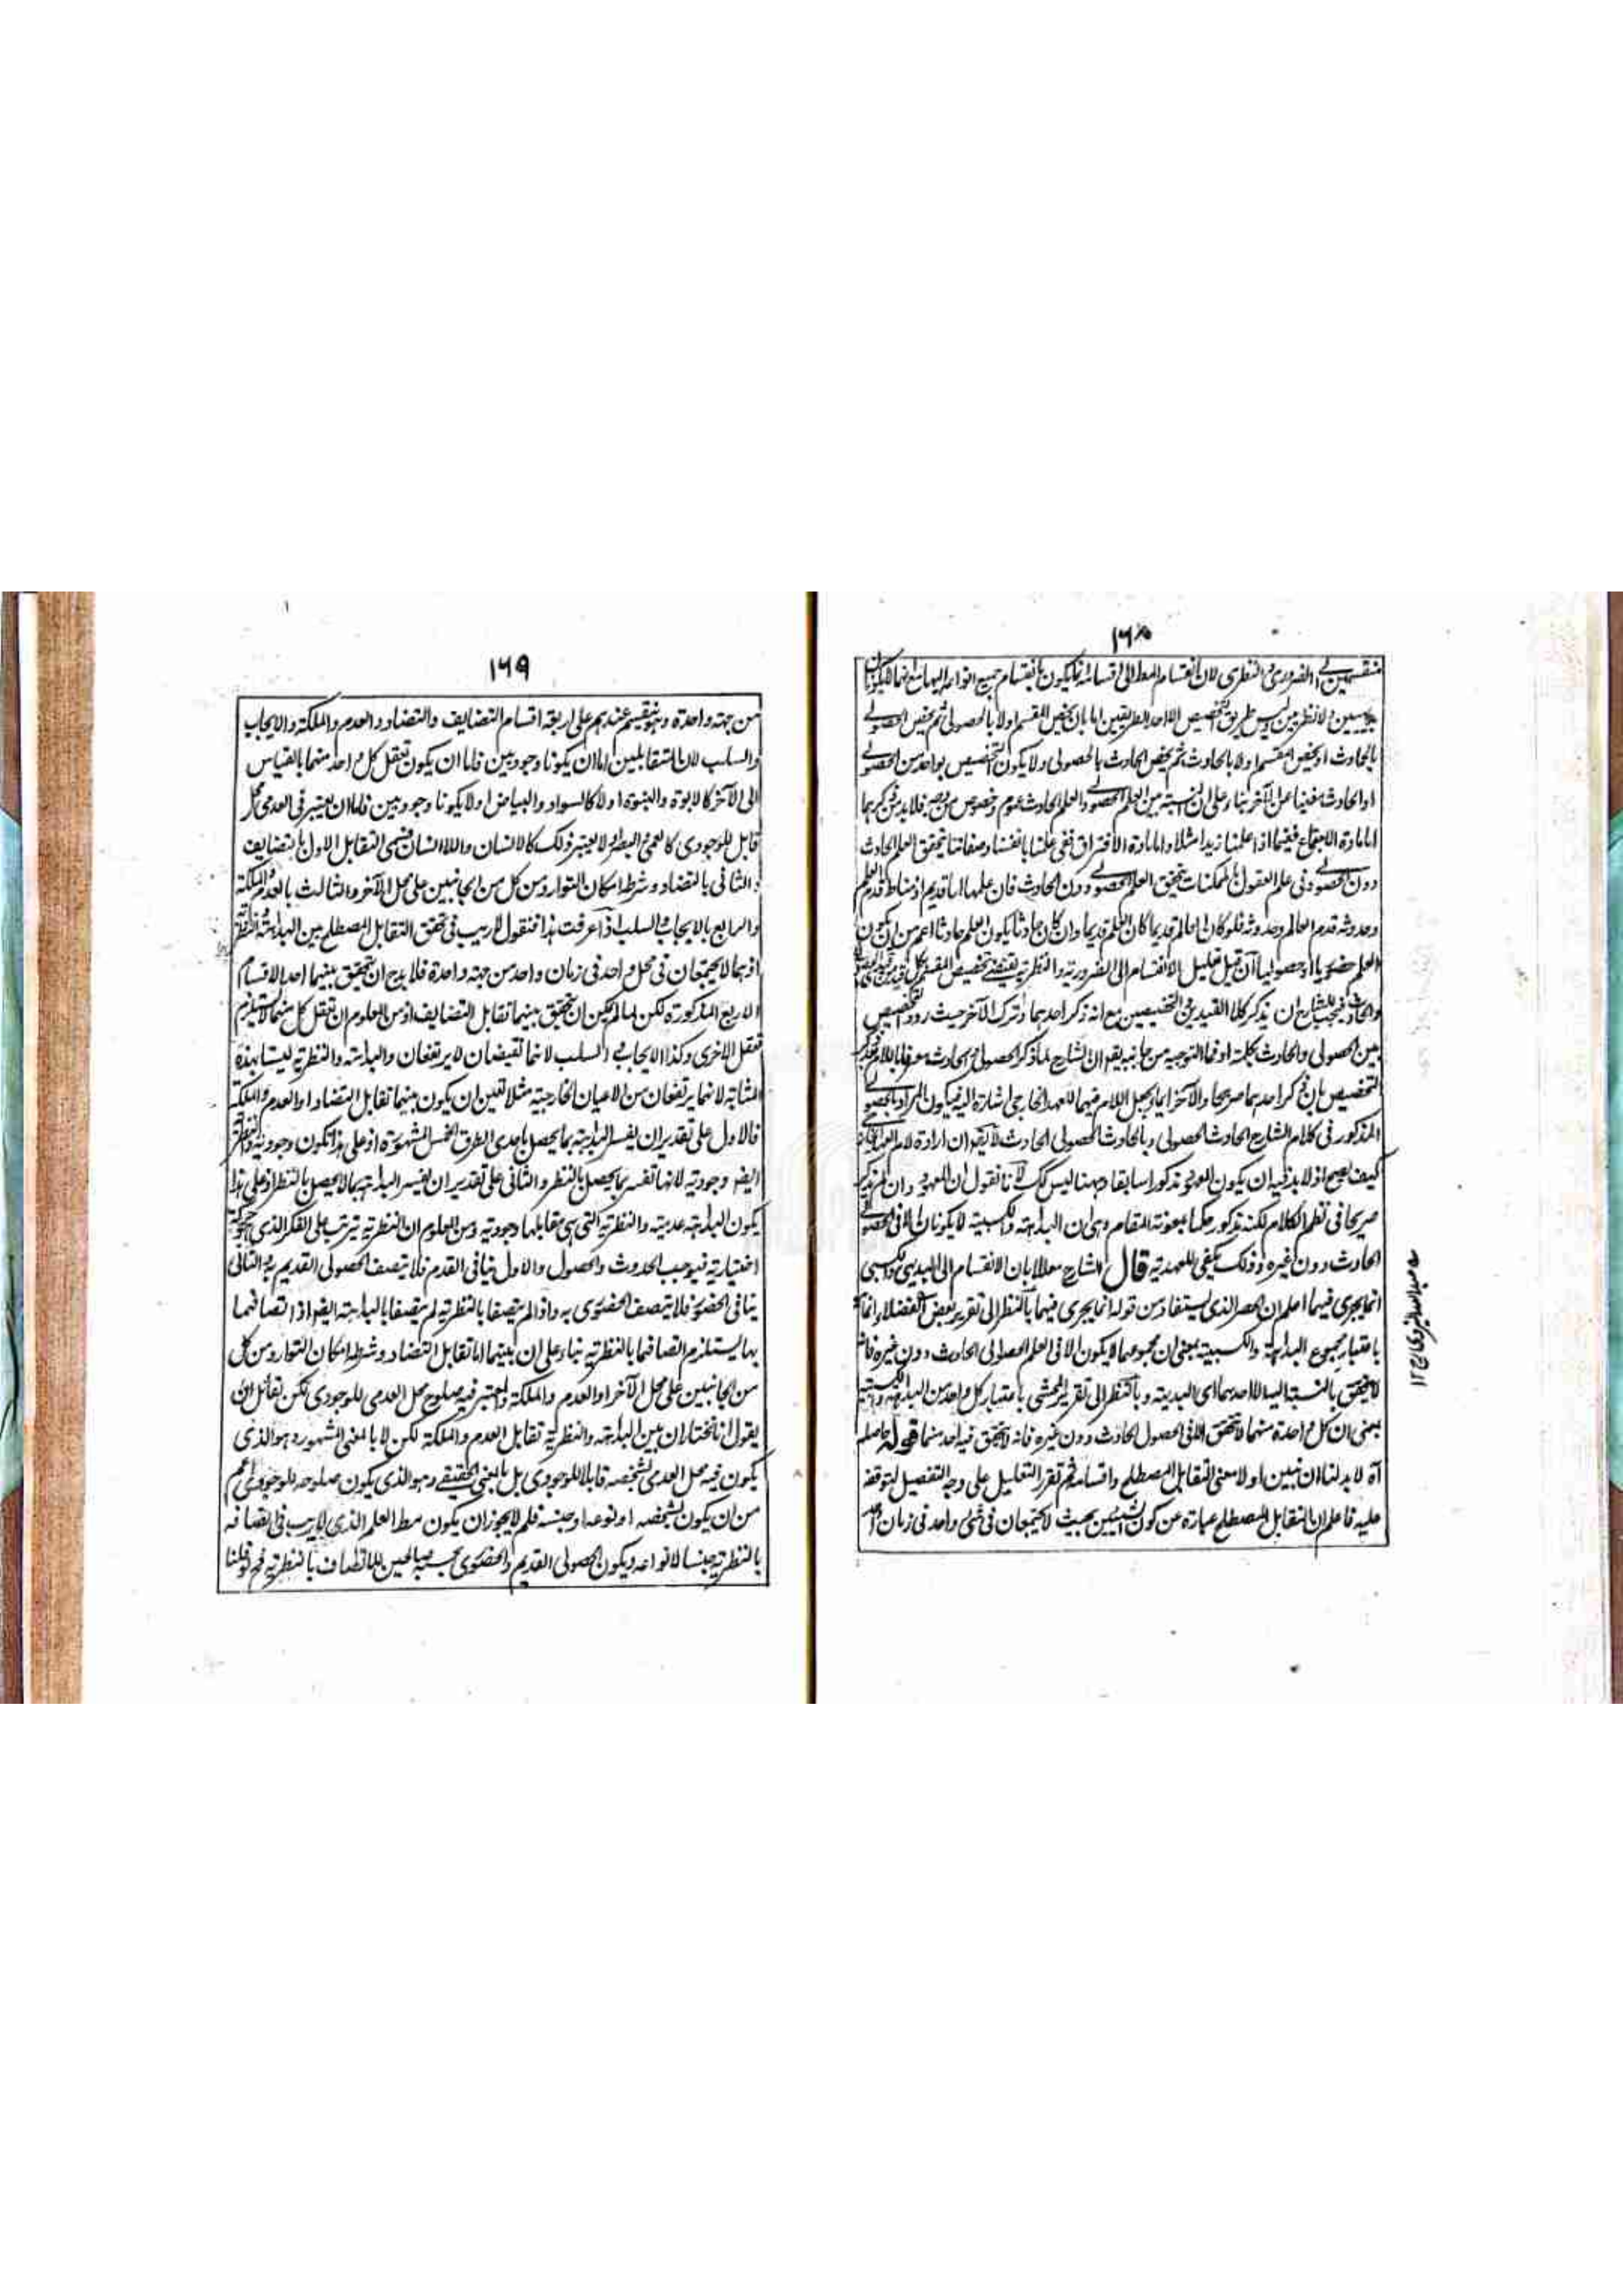 ١٦٨
منقسمين الى الضروري والنظري لان انقسام المطلق الى اقسام انما يكون بانقسام جميع انواعه اليها مع انهما لا يكونان
بديهيين ولا نظريين وليس طريق التخصيص الا احد الطريقين اما بان يخص المقسم اولا بالحصولي ثم يخص الحصولي
بالحادث او يخص المقسم اولا بالحادث ثم يخص الحادث بالحصولي ولا يكون التخصيص بواحد من الحصولي
او الحادث مغنيا عن الآخر بناء على ان النسبة بين العلم الحصولي والعلم الحادث عموم وخصوص من وجه فلا بد من ذكرهما
اما مادة الاجتماع ففيما اذا علمنا زيدا مثلا واما مادة الافتراق ففي علمنا بانفسنا وصفاتنا يتحقق العلم الحادث
دون الحصولي وفي علم العقول بالممكنات يتحقق العلم الحصولي دون الحادث فان علمها اما قديم اذ مناط قدم العلم
وحدوثه قدم العالم وحدوثه فلو كان العالم قديما كان العلم قديما وان كان حادثا يكون العلم حادثا اعم من ان يكون
العلم حضوريا او حصوليا فان قيل تعليل الانقسام الى الضرورية والنظرية يقتضي تخصيص المقسم بكل قيد من
والحادث فيجب للشارح ان يذكر كلا القيدين في التخصيصين مع انه ذكر احدهما وترك الآخر حيث ردد التخصيص
بين الحصولي والحادث بكلمة او فما التوجيه من جانبه يقو ان الشارح لما ذكر الحصولي والحادث معرفا باللام
التخصيص بان ذكر احدهما صريحا والآخر ايماء ويجعل اللام فيهما للعهد الخارجي اشارة اليه فيكون المراد بالحصولي
المذكور في كلام الشارح الحادث الحصولي وبالحادث الحصولي الحادث لا يقه ان ارادة لام العهد
كيف يصح اذ لا بد فيه ان يكون المعهود مذكورا سابقا وههنا ليس كك لانا نقول ان المعهود وان لم يذكر
صريحا في نظم الكلام لكنه مذكور حكما بمعونة المقام وهي ان البداهة والكسبية لا يكونان الا في الحصولي
الحادث دون غيره وذلك يكفي للعهدية قال الشارح معللا بان الانقسام الى البديهي والكسبي
انما يجري فيهما اعلم ان الحصر الذي يستفاد من قوله انما يجري فيهما بالنظر الى تقرير بعض الفضلاء انما
باعتبار مجموع البداهة والكسبية بمعنى ان مجموعهما لا يكون الا في العلم الحصولي الحادث دون غيره فانه
لا يتحقق بالنسبة اليه الا احدهما اي البديهية وبالنظر الى تقرير المحشي باعتبار كل واحد من البداهة والكسبية
بمعنى ان كل واحدة منهما لا تتحقق الا في الحصول الحادث دون غيره فانه لا يتحقق فيه احد منهما قوله حاصله
آه لا بد لنا ان نبين اولا معنى التقابل المصطلح واقسامه ثم تقرر التعليل على وجه التفصيل لتوقفه
عليه فاعلم ان التقابل المصطلح عبارة عن كون الشيئين بحيث لا يجتمعان في شئ واحد في زمان واحد
١٦٩
من جهة واحدة وهو ينقسم عندهم على اربعة اقسام التضايف والتضاد والعدم والملكة والايجاب
والسلب لان المتقابلين اما ان يكونا وجوديين فاما ان يكون تعقل كل واحد منهما بالقياس
الى الآخر كالابوة والبنوة اولا كالسواد والبياض او لا يكونا وجوديين فاما ان يعتبر في العدمي محل
قابل للوجودي كالعمى والبصر او لا يعتبر ذلك كالانسان واللاانسان فسمي التقابل الاول بالتضايف
والثاني بالتضاد وشرط امكان التوارد من كل من الجانبين على محل الآخر والثالث بالعدم والملكة
والرابع بالايجاب والسلب اذا عرفت هذا فنقول لا ريب في تحقق التقابل المصطلح بين البداهة والنظرية
اذ هما لا يجتمعان في محل واحد في زمان واحد من جهة واحدة فلا بد ح ان يتحقق بينهما احد الاقسام
الاربع المذكورة لكن لما لم يمكن ان يتحقق بينهما تقابل التضايف اذ من المعلوم ان تعقل كل منهما لا يستلزم
تعقل الاخرى وكذا الايجاب والسلب لانهما نقيضان لا يرتفعان والبداهة والنظرية ليستا بهذه
المثابة لانهما يرتفعان من الاعيان الخارجية مثلا تعين ان يكون بينهما تقابل التضاد او العدم والملكة
فالاول على تقدير ان يفسر البداهة بما يحصل باحدى الطرق الخمس المشهورة اذ على هذا تكون وجودية والنظرية
ايضا وجودية لانها تفسر بما يحصل بالنظر والثاني على تقدير ان يفسر البداهة بما لا يحصل بالنظر اذ على هذا
يكون البداهة عدمية والنظرية التي هي مقابلها وجودية ومن المعلوم ان النظرية تترتب على الفكر الذي هو حركة
اختيارية فيوجب الحدوث والحصول والاول ينافي القدم فلا يتصف الحصولي القديم به والثاني
ينافي الحضور فلا يتصف الحضوري به واذا لم يتصفا بالنظرية لم يتصفا بالبداهة ايضا اذ اتصافهما
بها يستلزم اتصافهما بالنظرية بناء على ان بينهما اما تقابل التضاد وشرطه امكان التوارد من كل
من الجانبين على محل الآخر او العدم والملكة والمعتبر فيه صلوح محل العدمي للوجودي لكن لقائل ان
يقول انا نختار ان بين البداهة والنظرية تقابل العدم والملكة لكن لا بالمعنى المشهور وهو الذي
يكون فيه محل العدمي بشخصه قابلا للوجودي بل بالمعنى الحقيقي وهو الذي يكون صلوحه للوجودي اعم
من ان يكون بشخصه او نوعه او جنسه فلم لا يجوز ان يكون مط العلم الذي لا ريب في اتصافه
بالنظرية جنسا لانواعه ويكون الحصولي القديم والحضوري بحسبه صالحين للاتصاف بالنظرية فح قولنا